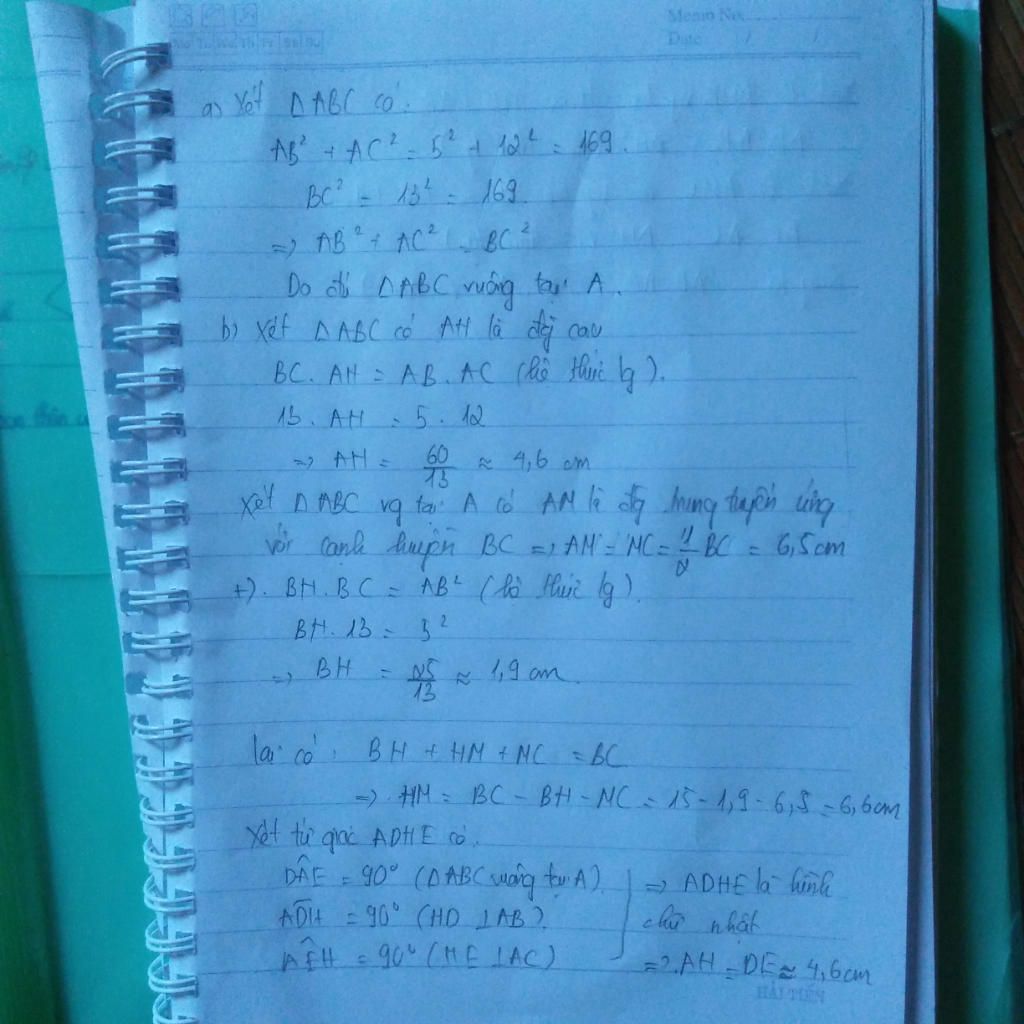 Memo No.
Date / /
Mo Tu We Th Fr Sa Su
a) Xét ΔABC có:
AB² + AC² = 5² + 12² = 169.
BC² = 13² = 169.
=> AB² + AC² = BC²
Do đó ΔABC vuông tại A.
b) Xét ΔABC có AH là đg cao
BC. AH = AB. AC (hệ thức lg).
13. AH = 5. 12
=> AH = 60/13 ≈ 4,6 cm
Xét ΔABC vg tại A có AM là đg trung tuyến ứng
với cạnh huyền BC => AM = MC = 1/2 BC = 6,5cm
+). BH. BC = AB² (hệ thức lg).
BH. 13 = 5²
=> BH = 25/13 ≈ 1,9 cm.
lại có: BH + HM + MC = BC
=> HM = BC - BH - MC = 15 - 1,9 - 6,5 = 6,6cm
Xét tứ giác ADHE có.
DÂE = 90° (ΔABC vuông tại A).
ADH = 90° (HD ⊥ AB).
AÊH = 90° (HE ⊥ AC)
=> ADHE là hình
chữ nhật
=> AH = DE ≈ 4,6cm
HẢI TIẾN